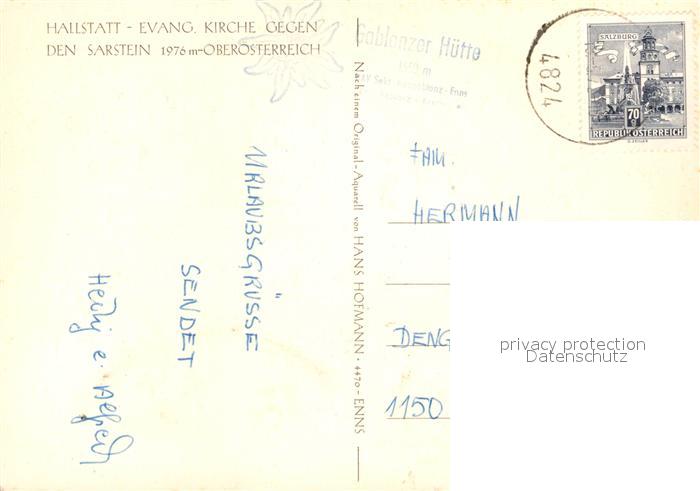 HALLSTATT - EVANG. KIRCHE GEGEN
DEN SARSTEIN 1976 m-OBERÖSTERREICH
URLAUBSGRÜSSE
SENDET
Hedy e. Alfred
Nach einem Original-Aquarell von HANS HOFMANN · 4470 - ENNS
Gablonzer Hütte
4824
SALZBURG
70 g
REPUBLIK ÖSTERREICH
FAM.
HERMANN
DENG
1150
privacy protection
Datenschutz